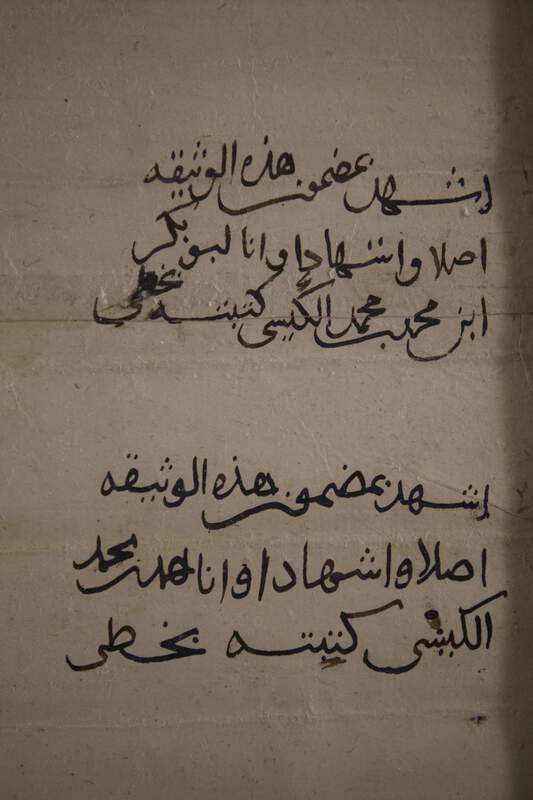 اشهد بمضمون هذه الوثيقه
اصلا واشهادا وانا ابو بكر
ابن محمد بن محمد الكبسي كتبته بخطي
اشهد بمضمون هذه الوثيقه
اصلا واشهادا وانا محمد
الكبسي كتبته بخطي